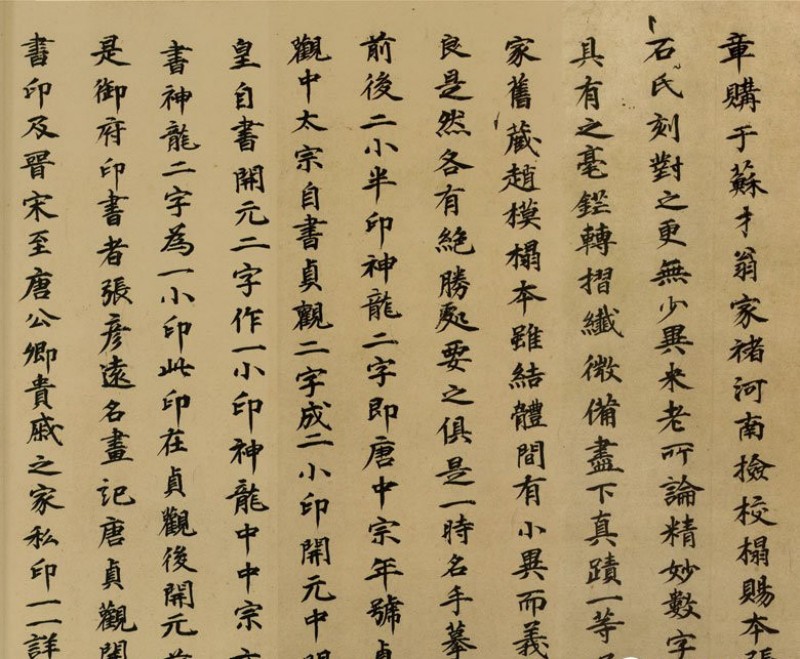 章購于蘇才翁家褚河南撿校榻賜本張
石氏刻對之更無少異米老所論精妙數字
具有之毫鋩轉摺纖微備盡下真蹟一等
家舊藏趙模榻本雖結體間有小異而義
良是然各有絕勝處要之俱是一時名手摹
前後二小半印神龍二字即唐中宗年號貞
觀中太宗自書貞觀二字成二小印開元中明
皇自書開元二字作一小印神龍中中宗亦
書神龍二字為一小印此印在貞觀後開元前
是御府印書者張彥遠名畫記唐貞觀開
書印及晉宋至唐公卿貴戚之家私印一一詳